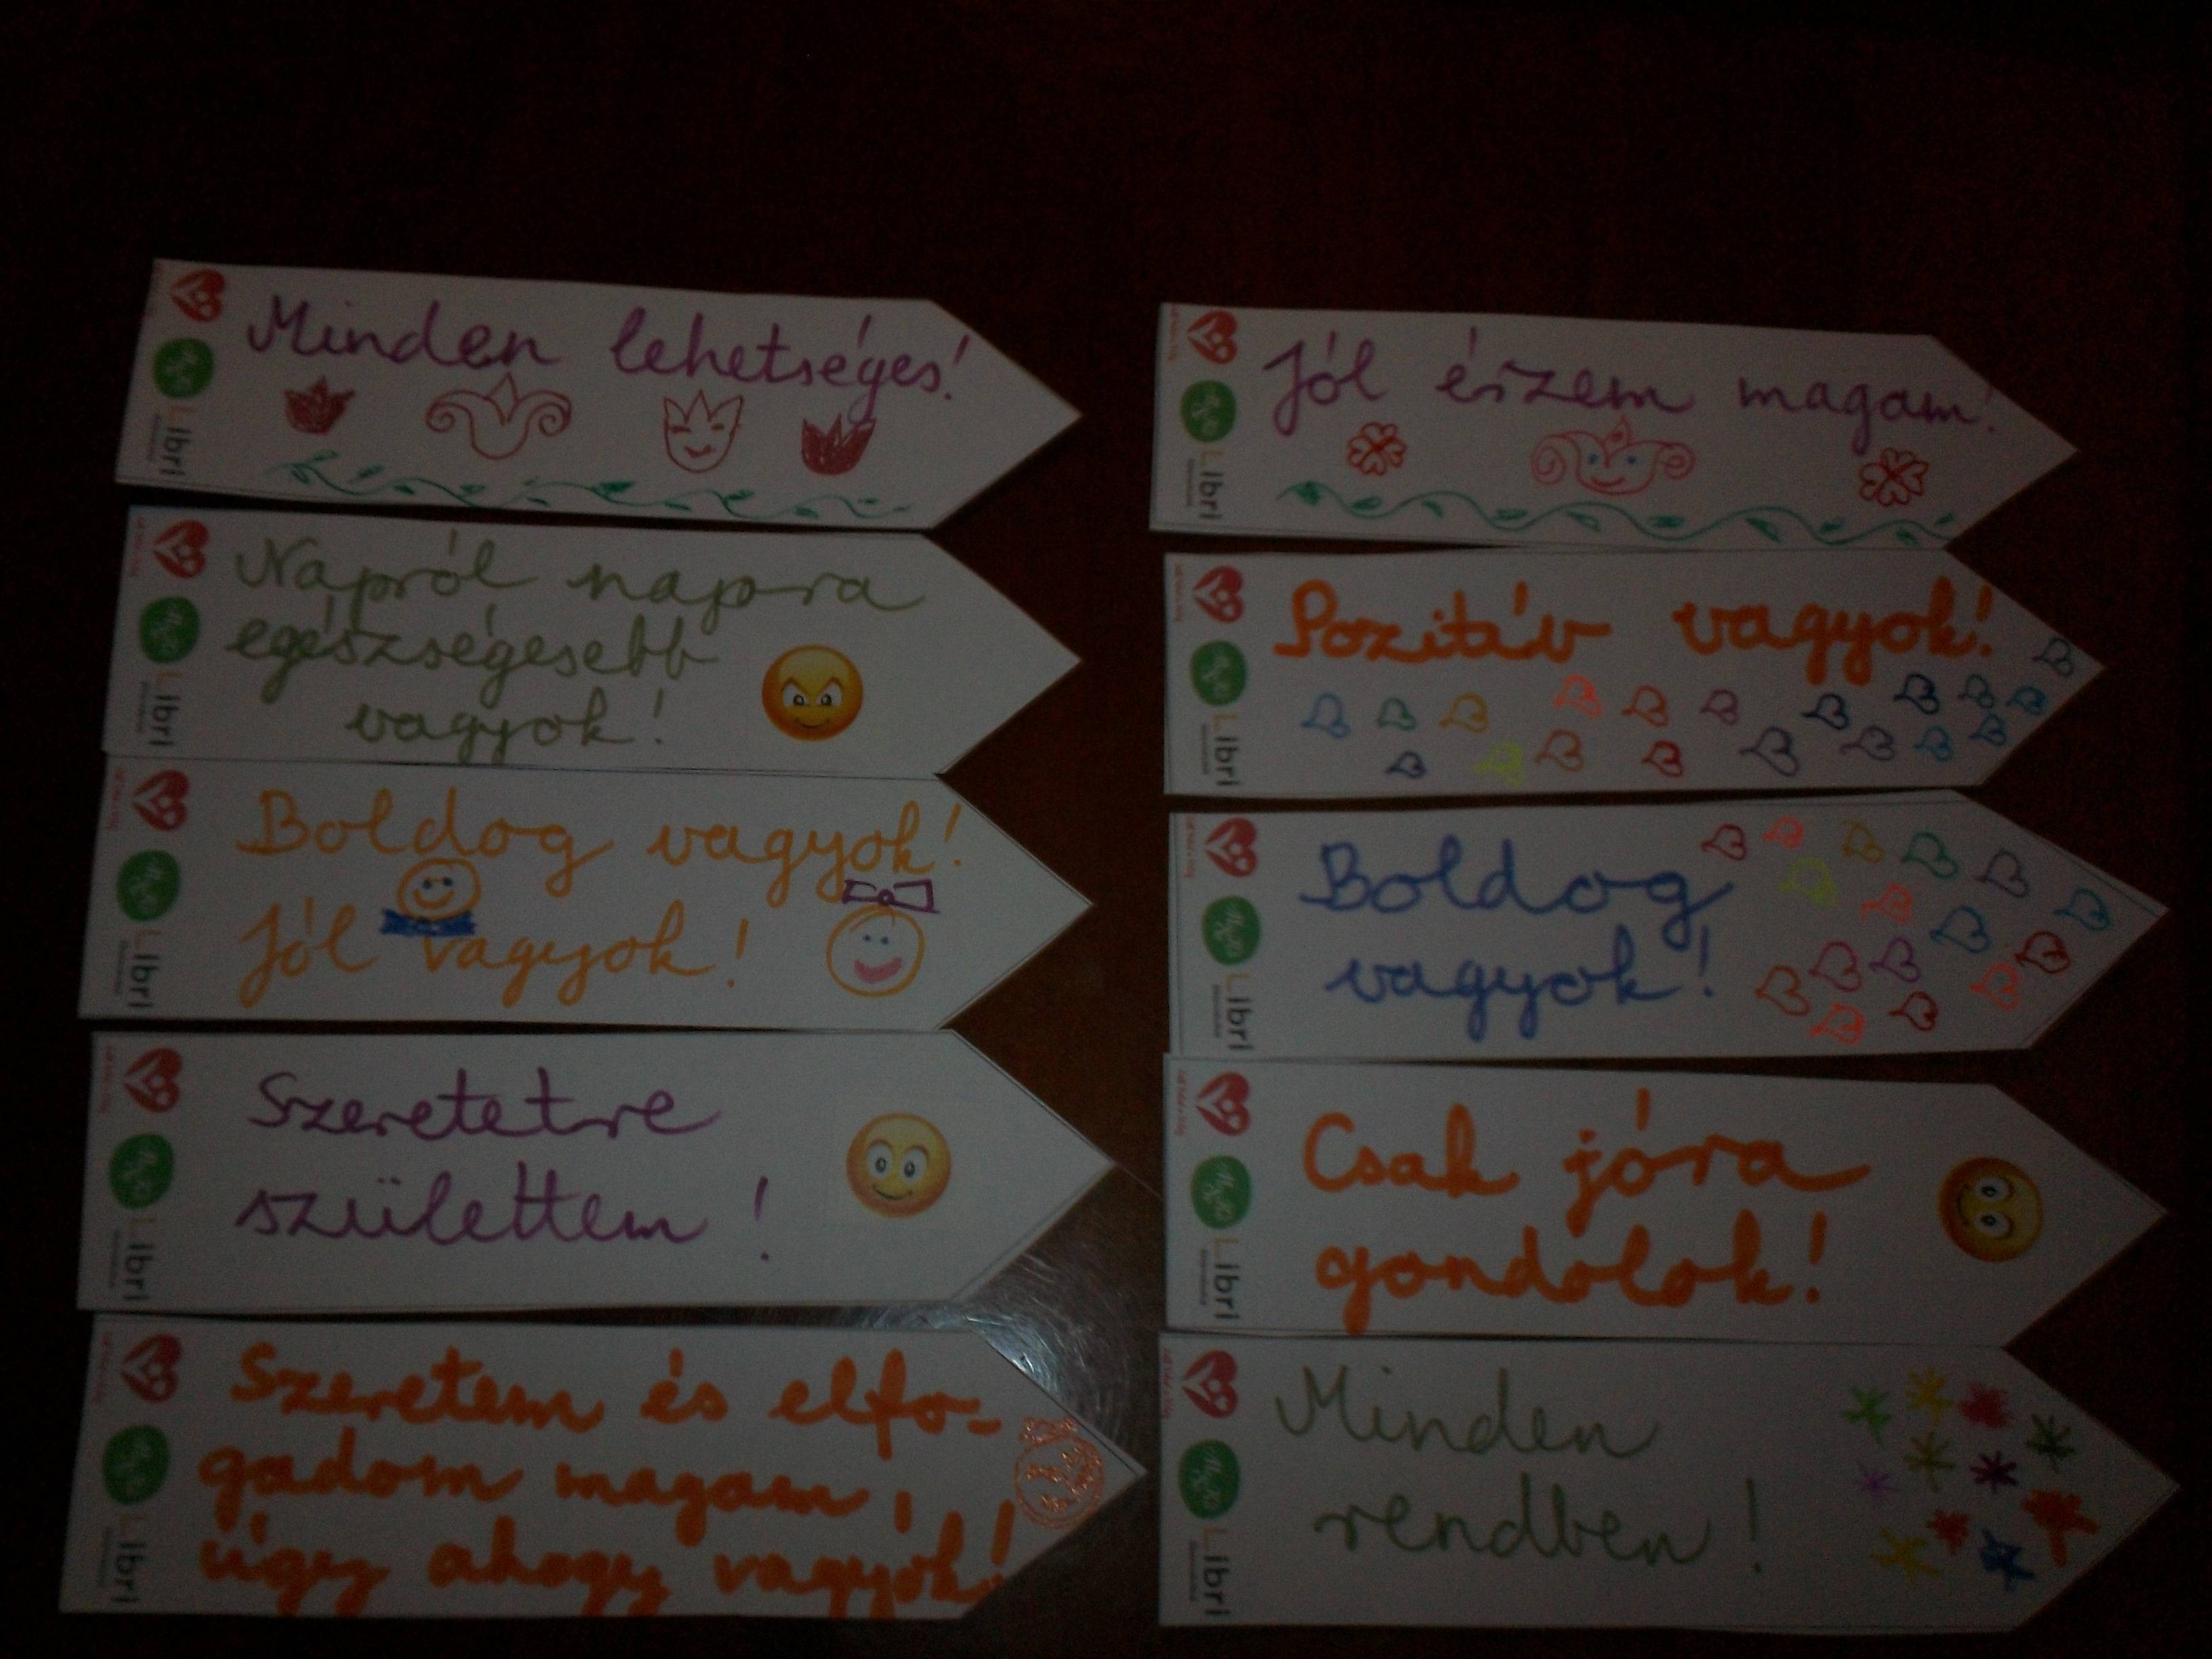 Minden lehetséges!
Libri
Napról napra
egészségesebb
vagyok!
Libri
Boldog vagyok!
Jól vagyok!
Libri
Szeretetre
születtem!
Libri
Szeretem és elfo-
gadom magam,
úgy ahogy vagyok!
Libri
Jól érzem magam!
Libri
Pozitív vagyok!
Libri
Boldog
vagyok!
Libri
Csak jóra
gondolok!
Libri
Minden
rendben!
Libri